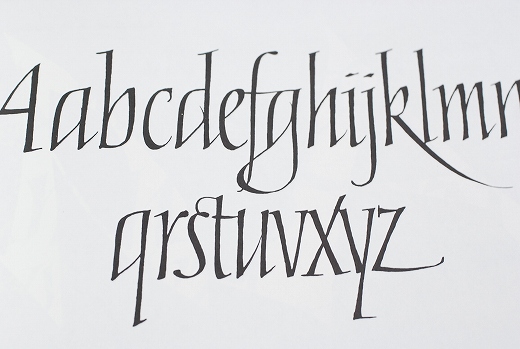 4abcdefghijklmn
qrstuvxyz